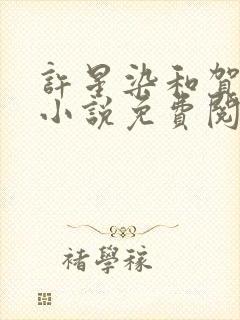 許星染和賀
小說免費閱
褚學稼